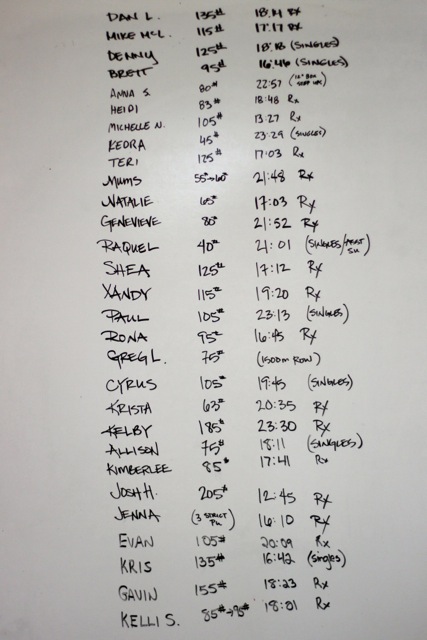 DAN L. 135# 18:14 Rx
MIKE McL. 115# 17:17 Rx
DENNY 125# 18:18 (SINGLES)
BRETT 95# 16:46 (SINGLES)
ANNA S. 80# 22:57 (12" BOX STEP UPS)
HEIDI 83# 18:48 Rx
MICHELLE N. 105# 13:27 Rx
KEDRA 45# 23:29 (SINGLES)
TERI 125# 17:03 Rx
MUMS 55#→60# 21:48 Rx
NATALIE 65# 17:03 Rx
GENEVIEVE 80# 21:52 Rx
RAQUEL 40# 21:01 (SINGLES/ SU)
SHEA 125# 17:12 Rx
XANDY 115# 19:20 Rx
PAUL 105# 23:13 (SINGLES)
RONA 95# 16:45 Rx
GREG L. 75# (1500m ROW)
CYRUS 105# 19:45 (SINGLES)
KRISTA 63# 20:35 Rx
KELBY 185# 23:30 Rx
ALLISON 75# 18:11 (SINGLES)
KIMBERLEE 85# 17:41 Rx
JOSH H. 205# 12:45 Rx
JENNA (3 STRICT PU) 16:10 Rx
EVAN 105# 20:09 Rx
KRIS 135# 16:42 (Singles)
GAVIN 155# 18:23 Rx
KELLI S. 85#→75# 18:01 Rx